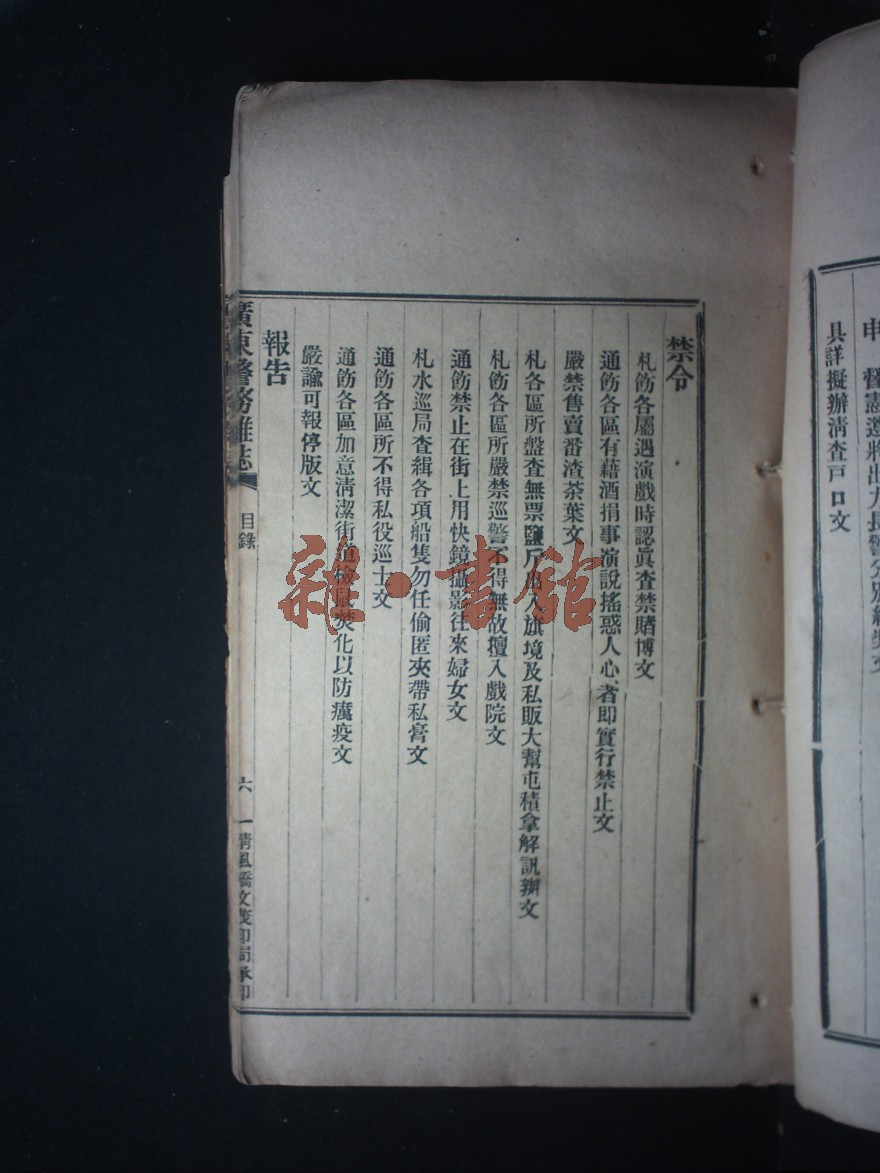 申 督憲遵將出力長警分別給獎文
具詳擬辦清查戸口文
禁令
札飭各屬遇演戲時認眞查禁賭博文
通飭各區有藉酒捐事演說搖惑人心者即實行禁止文
嚴禁售賣番渣茶葉文
札各區所盤查無票鹽斤出入旗境及私販大幫屯積拿解訊辦文
札飭各區所嚴禁巡警不得無故擅入戲院文
通飭禁止在街上用快鏡攝影往來婦女文
札水巡局查緝各項船隻勿任偷匿夾帶私膏文
通飭各區所不得私役巡士文
通飭各區加意淸潔街道檢鼠焚化以防癘疫文
嚴諭可報停版文
報告
廣東警務雜誌
目錄
六
一淸風橋文茂印局承印
雜·書館